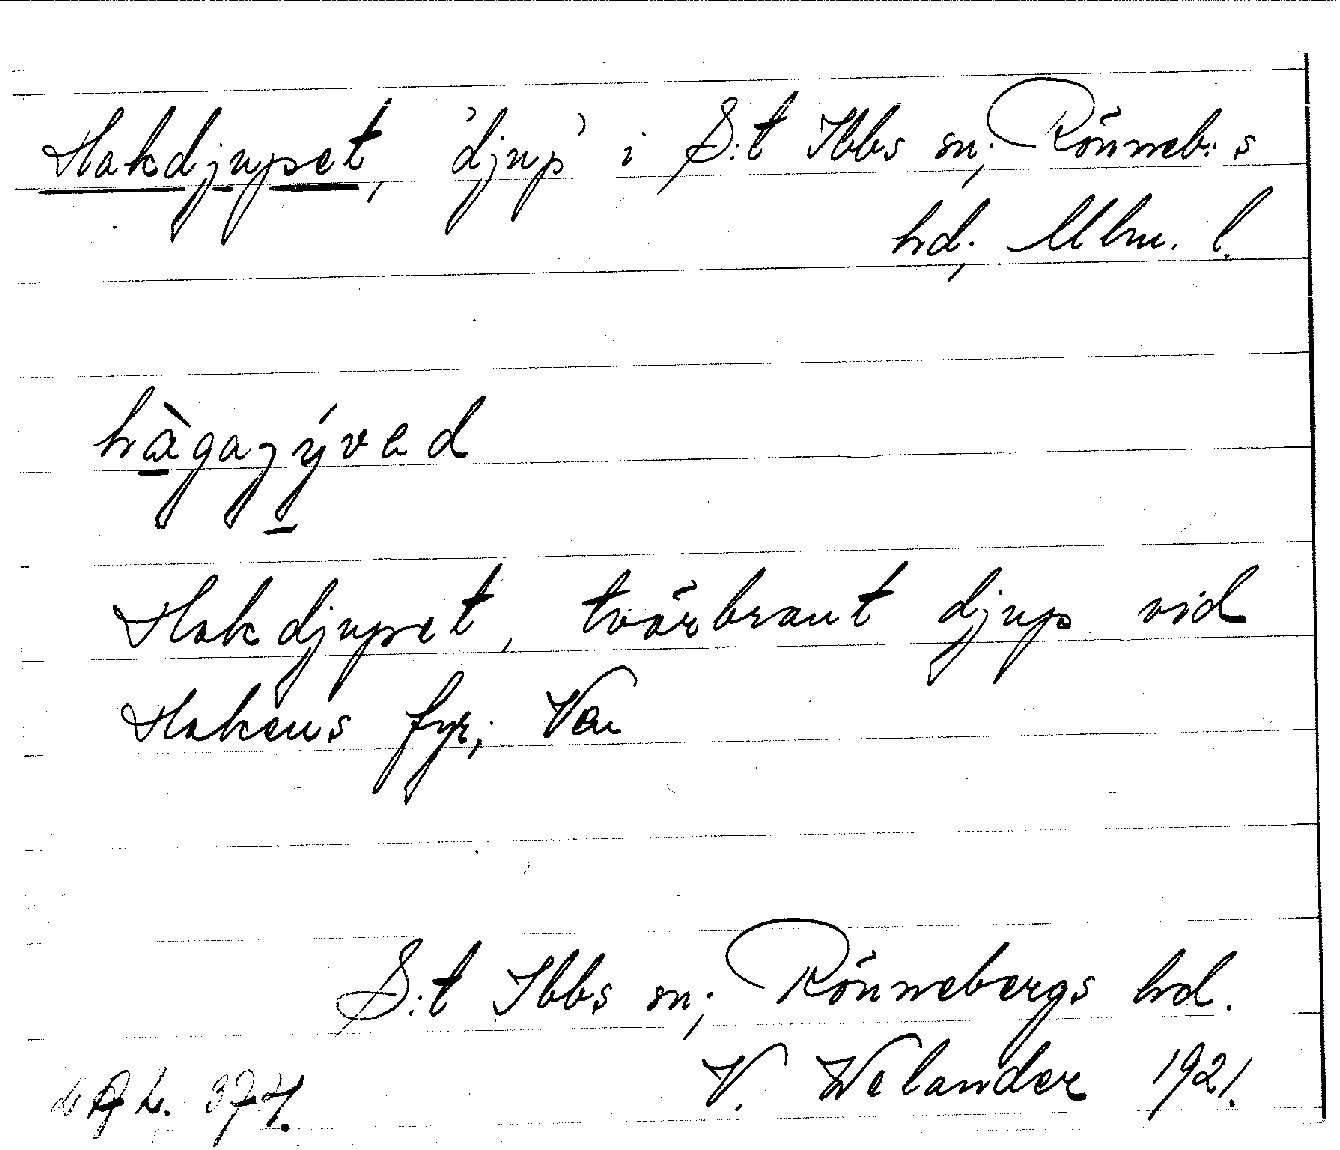 Hakdjupet, 'djup' i S:t Ibbs sn; Rönneb:s
hd; Mlm. l.
hàgaȷýved
Hakdjupet, tvärbrant djup vid
Hakens fyr; Ven
S:t Ibbs sn; Rönnebergs hd.
V. Welander 1921.